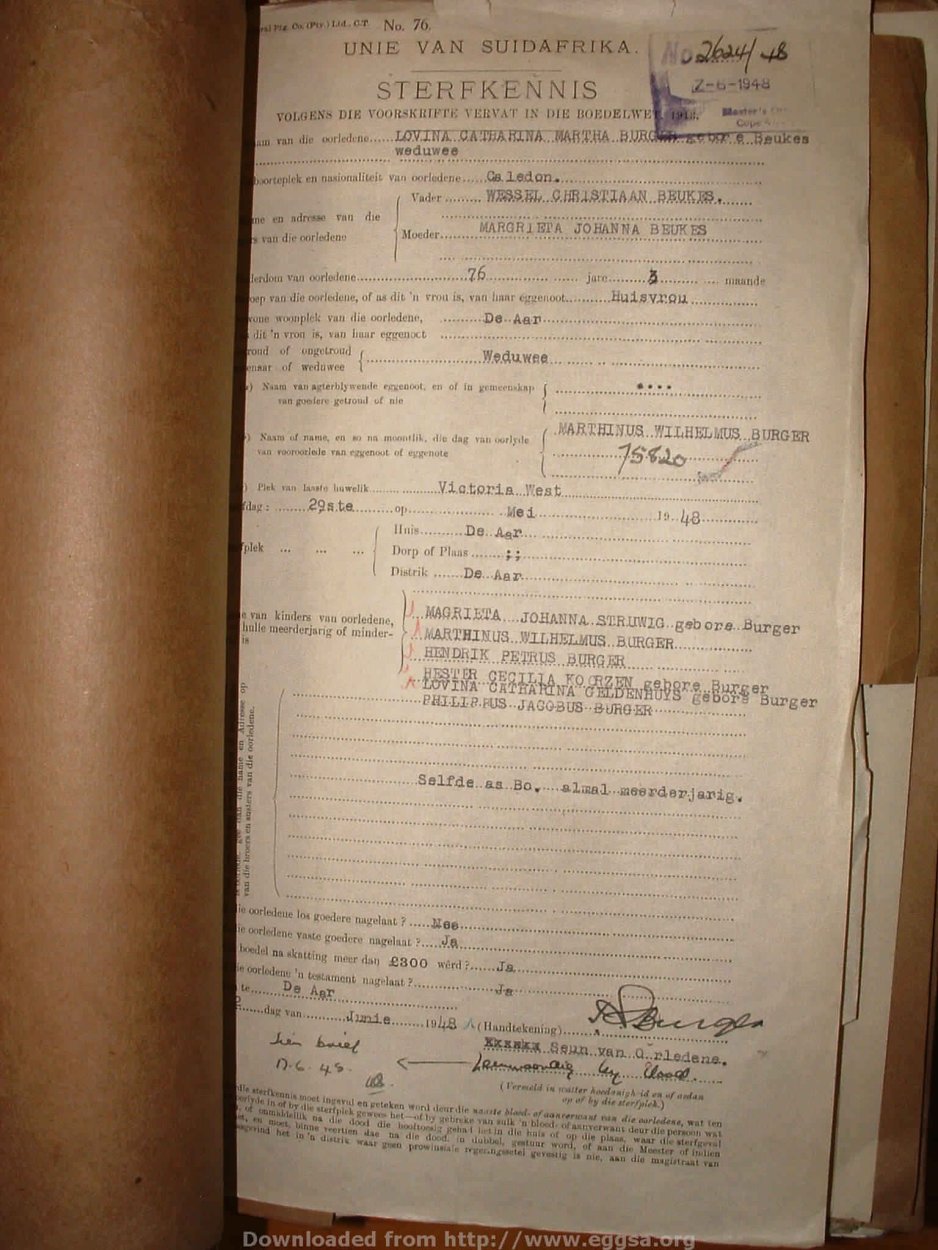 Co. (Pty.) Ltd., C.T. No. 76.
UNIE VAN SUIDAFRIKA.
No 2624/48
STERFKENNIS
2-6-1948
VOLGENS DIE VOORSKRIFTE VERVAT IN DIE BOEDELWET, 1913.
Master's
Cape
van die oorledene LOVINA CATHARINA MARTHA BURGER gebore Beukes
weduwee
boorteplek en nasionaliteit van oorledene Caledon.
Vader WESSEL CHRISTIAAN BEUKES.
me en adresse van die
rs van die oorledene
Moeder MARGRIETA JOHANNA BEUKES
derdom van oorledene 76 jare 3 maande
oep van die oorledene, of as dit 'n vrou is, van haar eggenoot Huisvrou
wone woonplek van die oorledene, De Aar
dit 'n vrou is, van haar eggenoot
roud of ongetroud Weduwee
enaar of weduwee
) Naam van agterblywende eggenoot, en of in gemeenskap ....
van goedere getroud of nie
) Naam of name, en so na moontlik, die dag van oorlyde MARTHINUS WILHELMUS BURGER
van vooroorlede van eggenoot of eggenote 75820
) Plek van laaste huwelik Victoria West
fdag : 29ste op Mei 19 48
Huis De Aar
fplek ... ... ... Dorp of Plaas ;;
Distrik De Aar
MAGRIETA JOHANNA STRUWIG gebore Burger
e van kinders van oorledene,
hulle meerderjarig of minder- MARTHINUS WILHELMUS BURGER
is
HENDRIK PETRUS BURGER
HESTER CECILIA KOORZEN gebore Burger
LOVINA CATHARINA GELDENHUYS gebore Burger
PHILIPPUS JACOBUS BURGER
gee dan die name en Adresse op
van die broers en susters van die oorledene.
Selfde as Bo, almal meerderjarig.
ie oorledene los goedere nagelaat ? Nee
ie oorledene vaste goedere nagelaat ? Ja
boedel na skatting meer dan £300 werd ? Ja
ie oorledene 'n testament nagelaat ? Ja
te De Aar
dag van Junie 1948 (Handtekening) Burger
xxxxxx Seun van O rledene.
Sien brief
17.6.48. Teenwoordig by dood.
(Vermeld in watter hoedanigheid en of aldan
op of by die sterfplek.)
die sterfkennis moet ingevul en geteken word deur die naaste bloed- of aanverwant van die oorledene, wat ten
oorlyde in of by die sterfplek gewees het—of by gebreke van sulk 'n bloed- of aanverwant deur die persoon wat
of onmiddellik na die dood die hooftoesig gehad het in die huis of op die plaas, waar die sterfgeval
en moet, binne veertien dae na die dood, in dubbel, gestuur word, of aan die Meester of indien
het in 'n distrik waar geen prowinsiale regeringsetel gevestig is nie, aan die magistraat van
Downloaded from http://www.eggsa.org